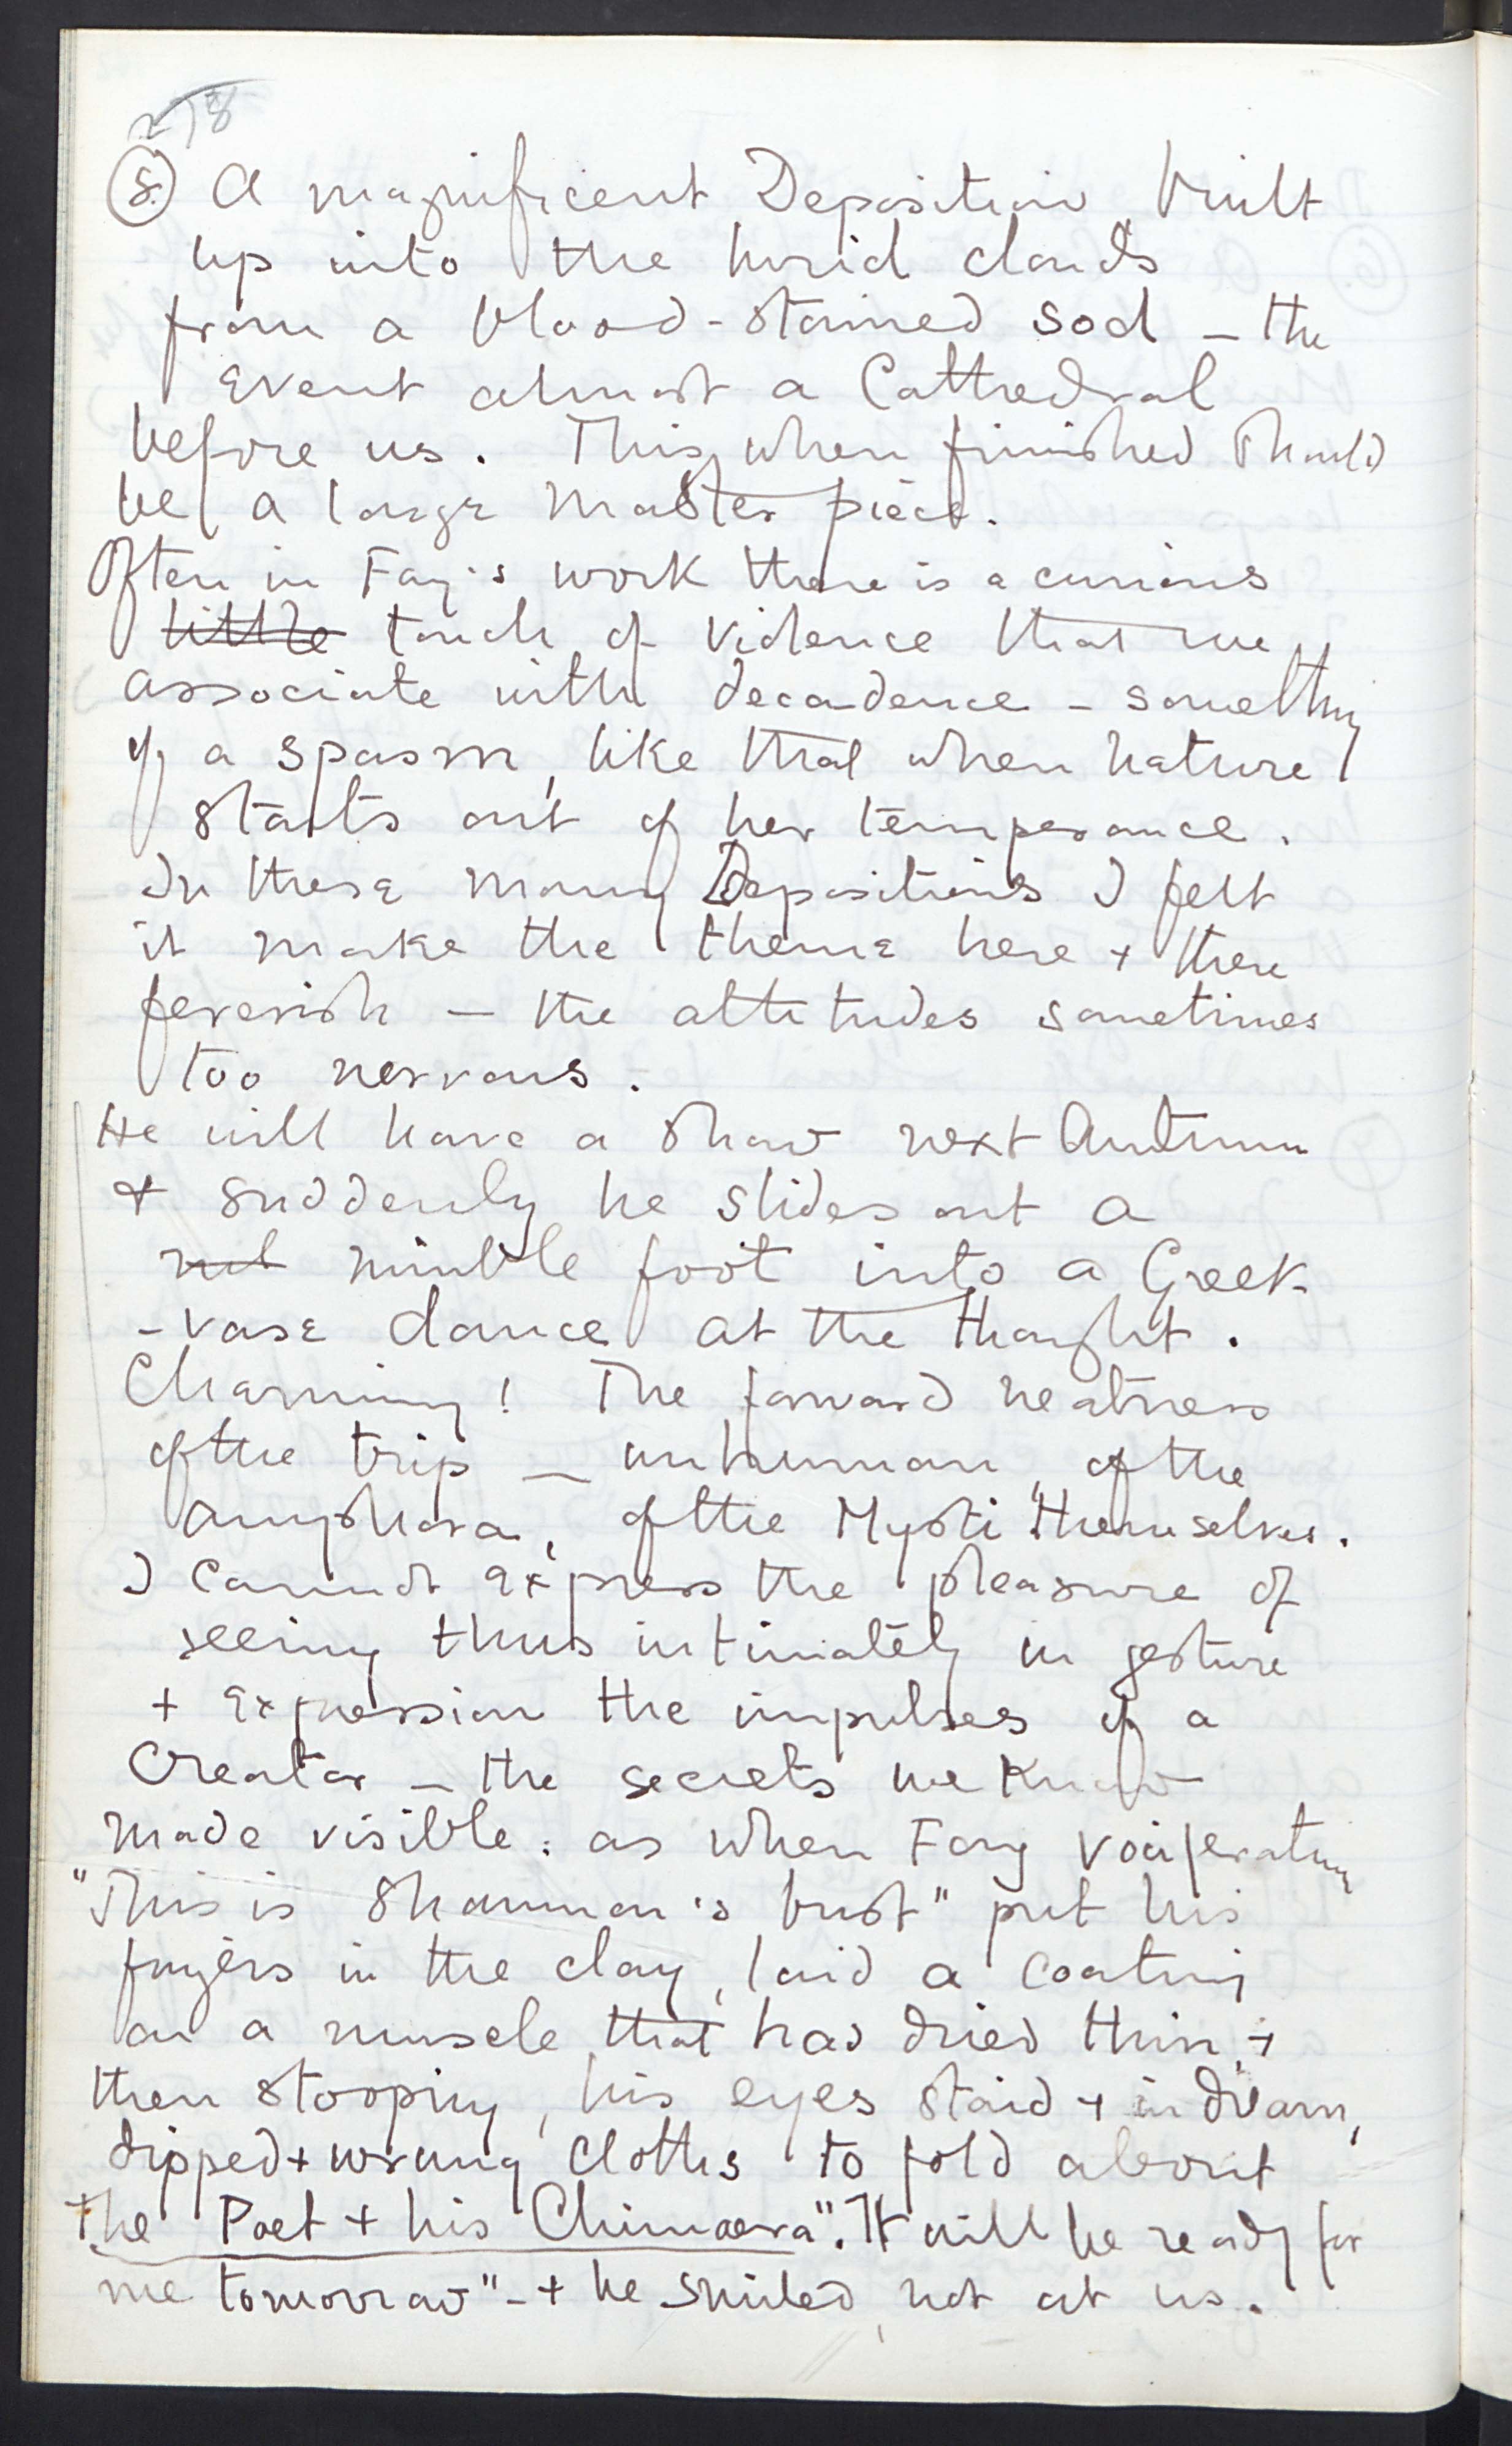 278
5. A magnificent Deposition built
up into the lurid clouds
from a blood-stained sod – the
event almost a Cathedral
before us. This, when finished should
be a large master piece.
Often in Fay's work there is a curious
little touch of violence that we
associate with decadence – something
of a spasm, like that when nature
starts out of her temperance.
In these many Depositions I felt
it make the theme here + there
feverish – the attitudes sometimes
too nervous.
He will have a show next Autumn
+ suddenly he slides out a
nimble foot into a Greek
-vase dance at the thought.
Charming! The forward neatness
of the trip – unhuman, of the
amphora, of the "Mysti" themselves.
I cannot express the pleasure of
seeing thus intimately in gesture
+ expression the impulses of a
Creator – the secrets we know
made visible: as when Fay vociferating
"This is Shannon's bust" put his
fingers in the clay, laid a coating
on a muscle that had dried thin, +
then stooping, his eyes staid + in dream,
dipped + wrung cloths to fold about
"The Poet + his Chimaera". It will be ready for
me tomorrow" – + he smiled, not at us.